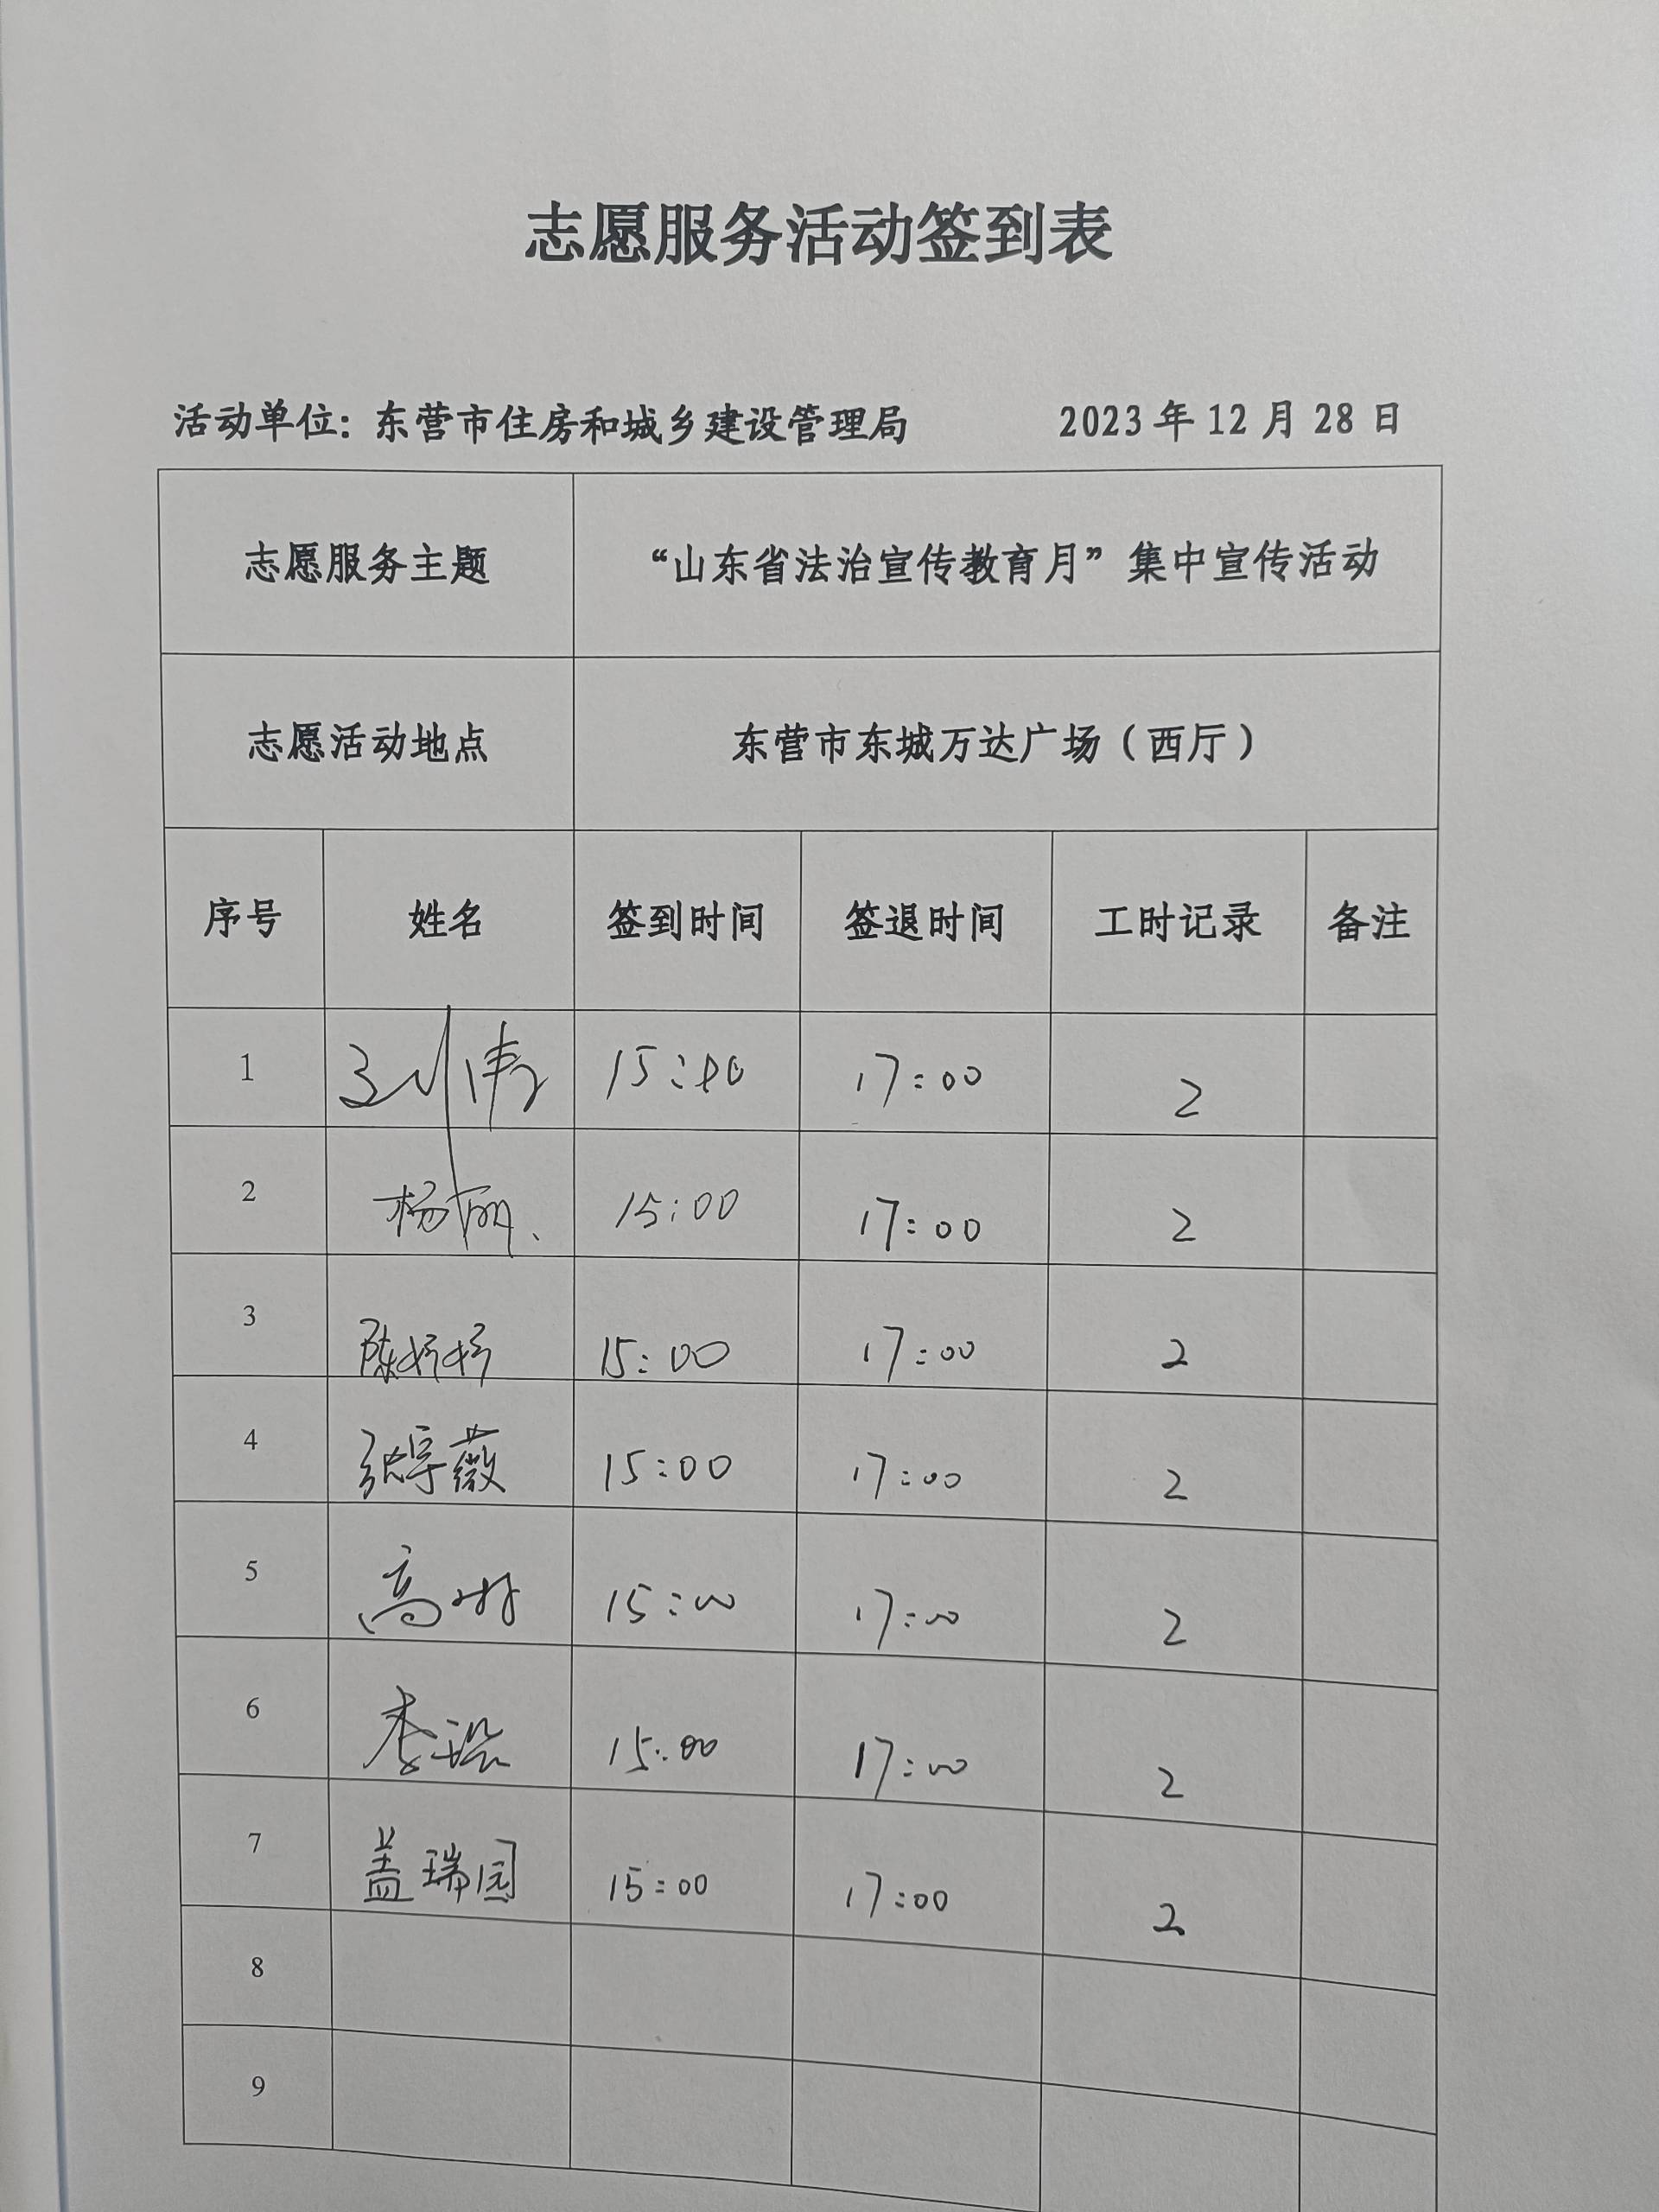 志愿服务活动签到表
活动单位：东营市住房和城乡建设管理局 2023年12月28日
志愿服务主题 “山东省法治宣传教育月”集中宣传活动
志愿活动地点 东营市东城万达广场（西厅）
序号 姓名 签到时间 签退时间 工时记录 备注
1 15:00 17:00 2
2 杨丽 15:00 17:00 2
3 陈婷婷 15:00 17:00 2
4 张宇薇 15:00 17:00 2
5 高琳 15:00 17:00 2
6 李瑶 15:00 17:00 2
7 盖瑞园 15:00 17:00 2
8
9